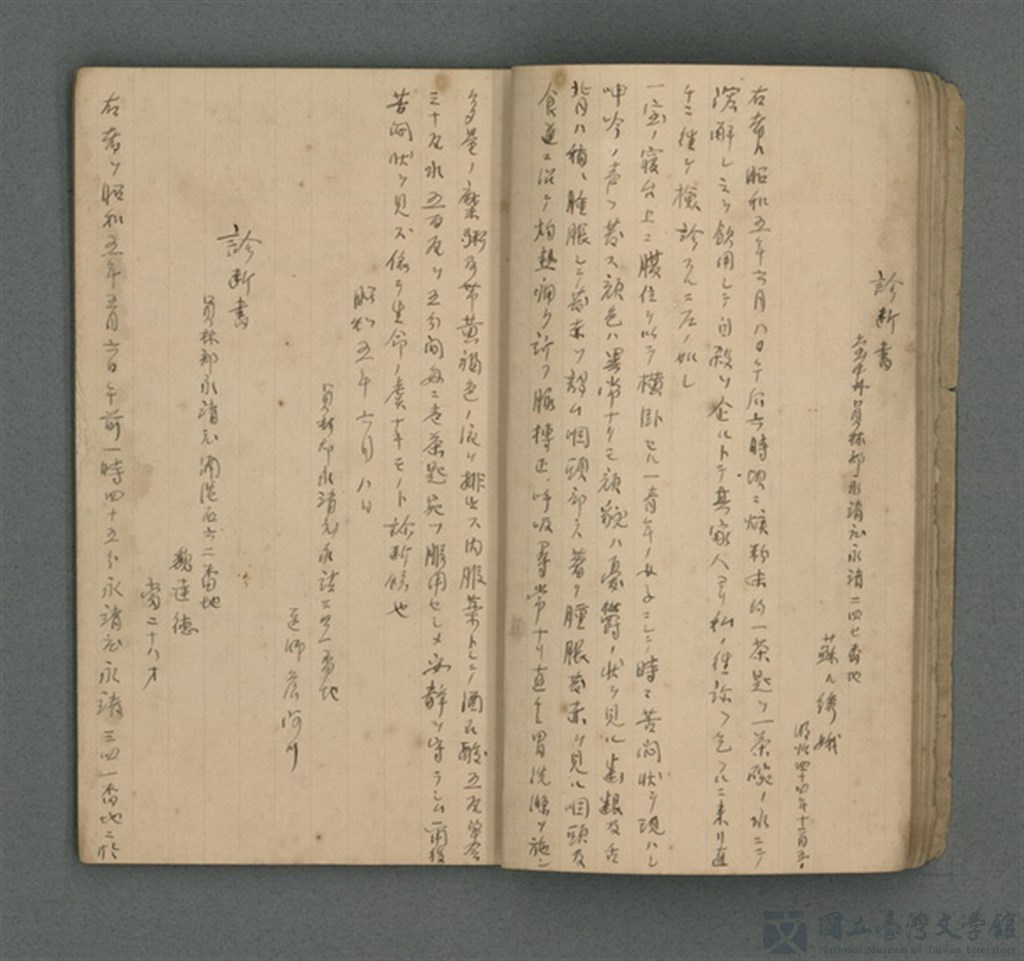 診断書
台中州員林郡永靖庄永靖二四七番地
蘇氏綉娥
明治四十四年十二月五日
右者ハ昭和五年六月八日午后六時頃ニ燐粉末約一茶匙ヲ一茶碗ノ水ニテ
溶解シ之ヲ飲用シテ自殺ヲ企ルトテ其家人ヨリ私ノ往診ヲ乞フニ来リ直
ケニ往ツ検診スルニ左ノ如シ
一室ノ寝台上ニ膜位ヲ以テ横臥セル一青年ノ女子ニシテ時々苦悶状ヲ現ハシ
呻吟ノ声ヲ発ス顔色ハ異常ナキモ顔貌ハ憂欝ノ状ヲ見ル歯齦及舌
背ハ稍々腫脹シテ発赤ヲ認ム咽頭部ハ著シ腫脹発赤ヲ見ル咽頭及
食道ニ沿テ灼熱痛ヲ訴フ脈搏正、呼吸尋常ナリ直至胃洗滌ヲ施シ
多量ノ糜粥及帯黄褐色ノ液ヲ排出ス内服薬トシテ酒石酸五瓦単舎
三十瓦水五百瓦ヲ五分間毎ニ壱茶匙宛ヲ服用セシメ安静ヲ守ラシム爾後
苦悶状ヲ見ズ依テ生命ノ虞ナキモノト診断候也
昭和五年六月八日
員林郡永靖庄永靖三四一番地
医師
診断書
員林郡永靖庄浦港五六二番地
魏達德
当二十八才
右者ハ昭和五年五月六日午前一時四十五分永靖庄永靖三四一番地ニ於
國立臺灣文學館
National Museum of Taiwan Literature